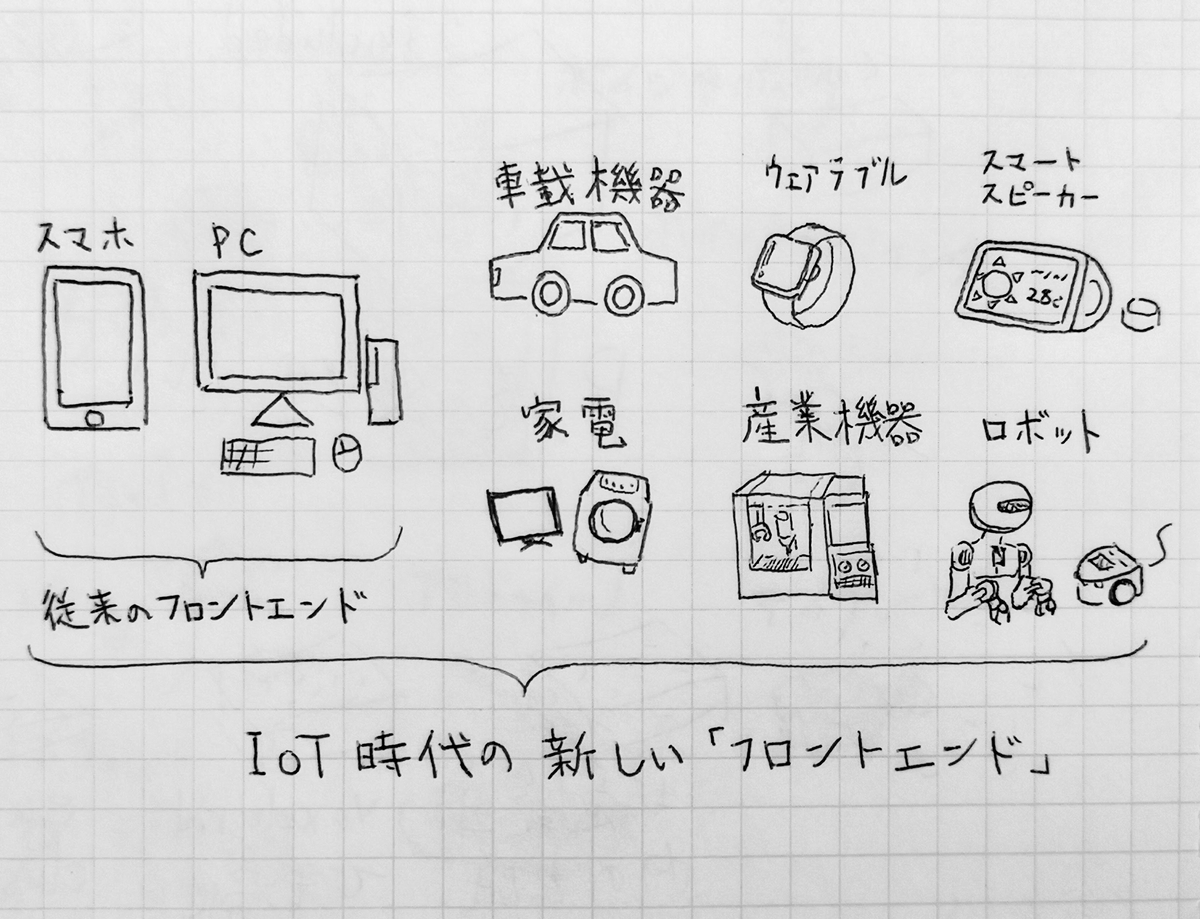 スマホ
PC
車載機器
ウェアラブル
スマート
スピーカー
28c
家電
産業機器
ロボット
N
従来のフロントエンド
IoT 時代の 新しい 「フロントエンド」